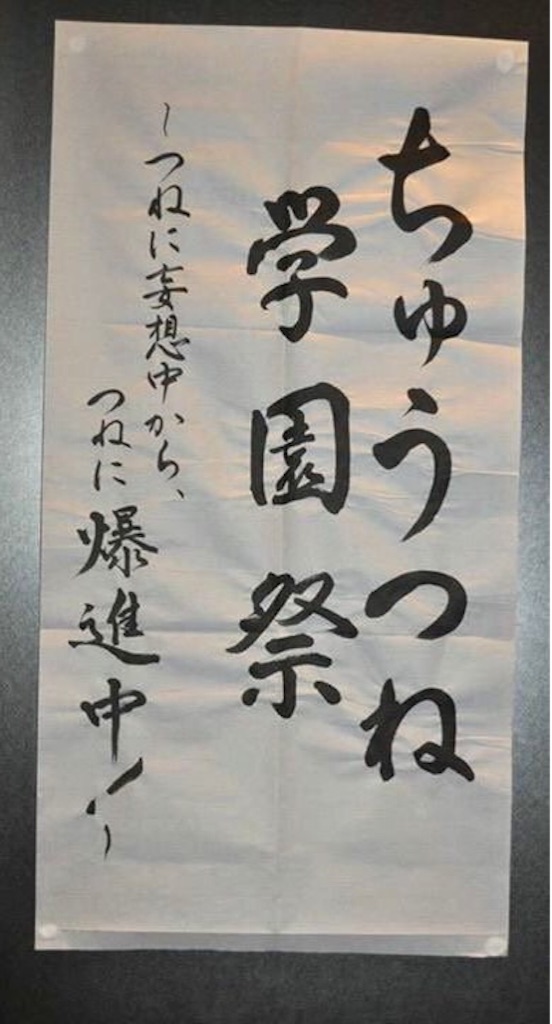 ちゅうつね
学園祭
~つねに妄想中から、
つねに爆進中!~